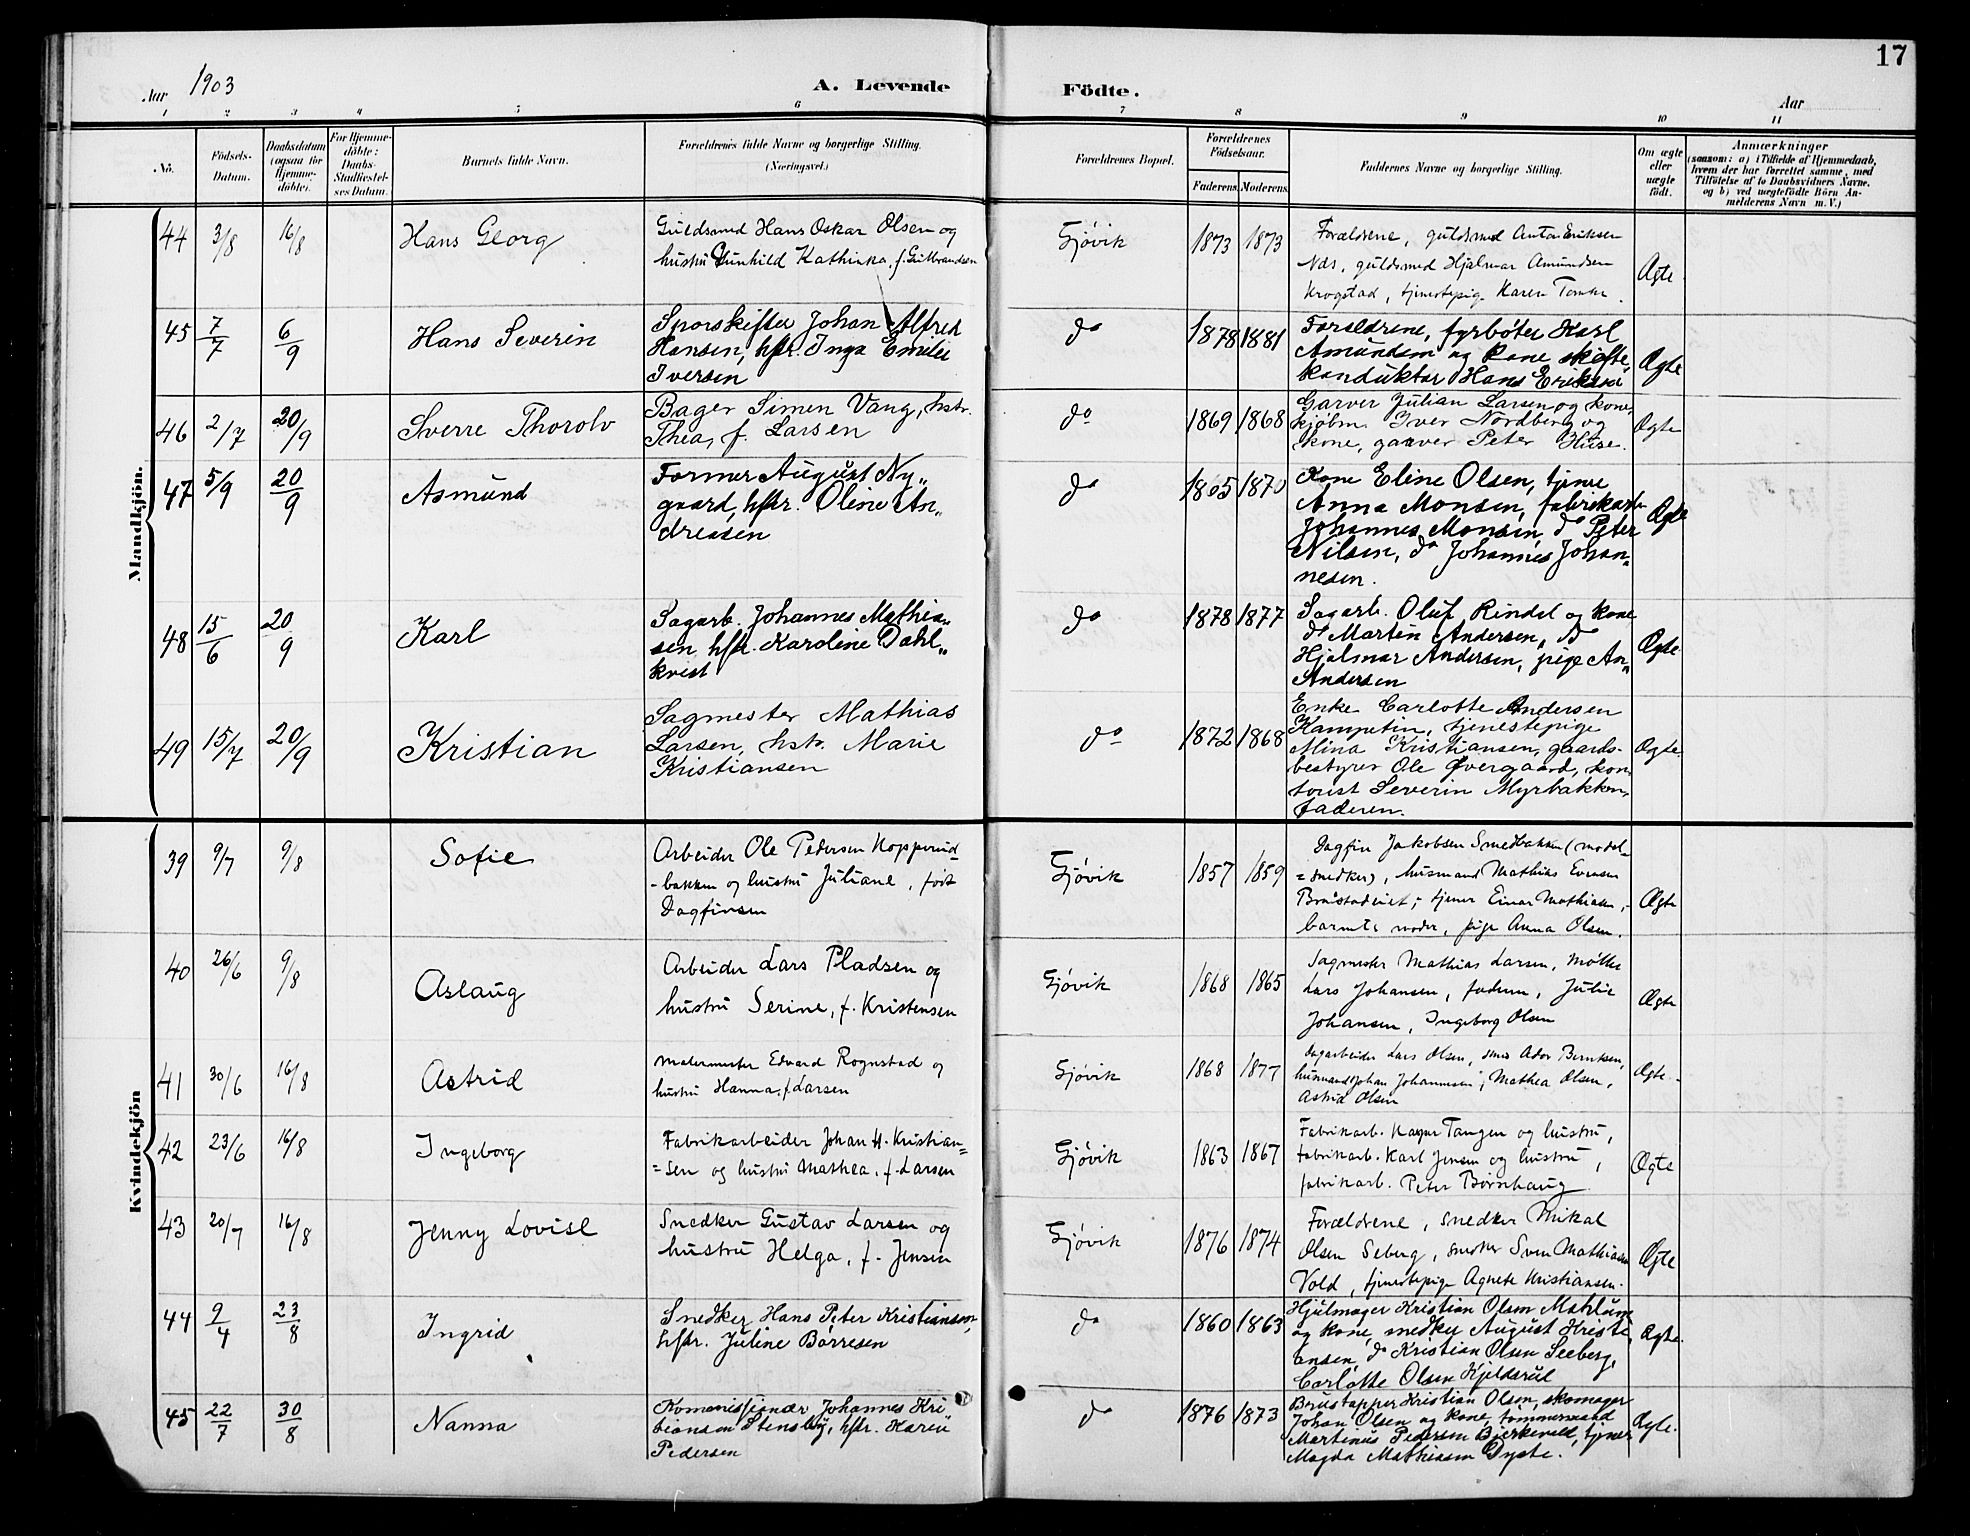 17
Aar 1903
A. Levende Födte.
Aar
1 2 3 4 5 6 7 8 9 10 11
No.
Födsels-Datum.
Daabsdatum (ogsaa for Hjemmedöbte).
For Hjemmedöbte: Daabs-Stadfæstelses Datum.
Barnets fulde Navn.
Forældrenes fulde Navne og borgerlige Stilling.
(Næringsvei.)
Forældrenes Bopæl.
Forældrenes Födselsaar.
Faderens. Moderens.
Faddernes Navne og borgerlige Stilling.
Om ægte eller uægte födt.
Anmærkninger
(saasom: a) i Tilfælde af Hjemmedaab,
hvem der har forrettet samme, med
Tilföielse af to Daabsvidners Navne,
og b) ved uægtefödte Börn An-
melderens Navn m. V.)
Mandkjön.
44 3/8 16/8 Hans Georg
Guldsmed Hans Oskar Olsen og
hustru Gunhild Kathinka, f. Gulbrandsen
Gjövik 1873 1873
Forældrene, guldsmed Anton Eriksen
Næs, guldsmed Hjalmar Amundsen
Krogstad, tjenestepige Karen
Ægte
45 7/7 6/9 Hans Severin
Sporskifter Johan Alfred
Hansen, hstr. Inga Emilie
Iversen
do 1878 1881
Forældrene, fyrböter Karl
Amundsen og kone, skifte
konduktör Hans Eriksen
Ægte
46 2/7 20/9 Sverre Thorolv
Bager Simen Vang, hstr.
Thea, f. Larsen
do 1869 1868
Garver Julian Larsen og kone,
kjøbm. Iver Nordberg og
kone, garver Peter Huse.
Ægte
47 5/9 20/9 Asmund
Former August Ny„
gaard, hstr. Oline An„
dreasen
do 1865 1870
Kone Eline Olsen, tjener
Anna Monsen, fabrikarb.
Johannes Monsen, do Peter
Nilsen, do Johannes Johan„
nesen.
Ægte
48 15/6 20/9 Karl
Sagarb. Johannes Mathia„
sen, hstr. Karoline Dahl„
kvist
do 1878 1877
Sagarb. Oluf Rindal og kone
do Martin Andersen, do
Hjalmar Andersen, pige An„
Andersen
Ægte
49 15/7 20/9 Kristian
Sagmester Mathias
Larsen, hstr. Marie
Kristiansen
do 1872 1868
Enke Carlotte Andersen
Kampetin, tjenestepige
Mina Kristiansen, gaards-
bestyrer Ole Øvergaard, kon-
torist Severin Myrbakken,
faderen.
Ægte
Kvindekjön
39 9/7 9/8 Sofie
Arbeider Ole Pedersen Hopperud-
-bakken og hustru Juliane, født
Dagfinsen
Gjövik 1857 1859
Dagfin Jakobsen Smedbakken (model-
=snedker), husmand Mathias Evensen
tjener Einar Mathisen,
barnets moder, pige Anna Olsen.
Ægte
40 26/6 9/8 Aslaug
Arbeider Lars Pladsen og
hustru Serine, f. Kristensen
Gjövik 1868 1865
Sagmester Mathias Larsen, møller
Lars Johansen, faderen, Julie
Johansen, Ingeborg Olsen
Ægte
41 30/6 16/8 Astrid
Malermester Edvard Rognstad og
hustru Hanna, f. Larsen
Gjövik 1868 1877
Dagarbeider Lars Olsen, smed Ador Berntsen,
husmand Johan Johannesen, Mathea Olsen,
Astrid Olsen
Ægte
42 23/6 16/8 Ingeborg
Fabrikarbeider Johan H. Kristian=
=sen og hustru Mathea, f. Larsen
Gjövik 1863 1867
Fabrikarb. Kasper Tangen og hustru,
fabrikarb. Karl Jensen og hustru,
fabrikarb. Peter Børshaug
Ægte
43 20/7 16/8 Jenny Lovise
Snedker Gustav Larsen og
hustru Helga, f. Jensen
Gjövik 1876 1874
Forældrene, snedker Mikal
Olsen Seberg, snedker Sven Mathiasen
Vold, tjenestepige Agnete Kristiansen.
Ægte
44 9/4 23/8 Ingrid
Snedker Hans Peter Kristiansen,
hstr. Juline Børresen
do 1860 1863
Hjulmager Kristian Olsen Mæhlum
og kone, snedker August Kristi
ansen, do Kristian Olsen Seeberg,
Carlotte Olsen Kjeldsrud
Ægte.
45 22/7 30/8 Nanna
Kommissionær Johannes Kri
stiansen Stensby, hstr. Karen
Pedersen
do 1876 1873
Brustapper Kristian Olsen, skomager
Johan Olsen og kone, tømmermand
Martinus Pedersen Bjerkevold, tjener
Magda Mathiasen Dyste.
Ægte.